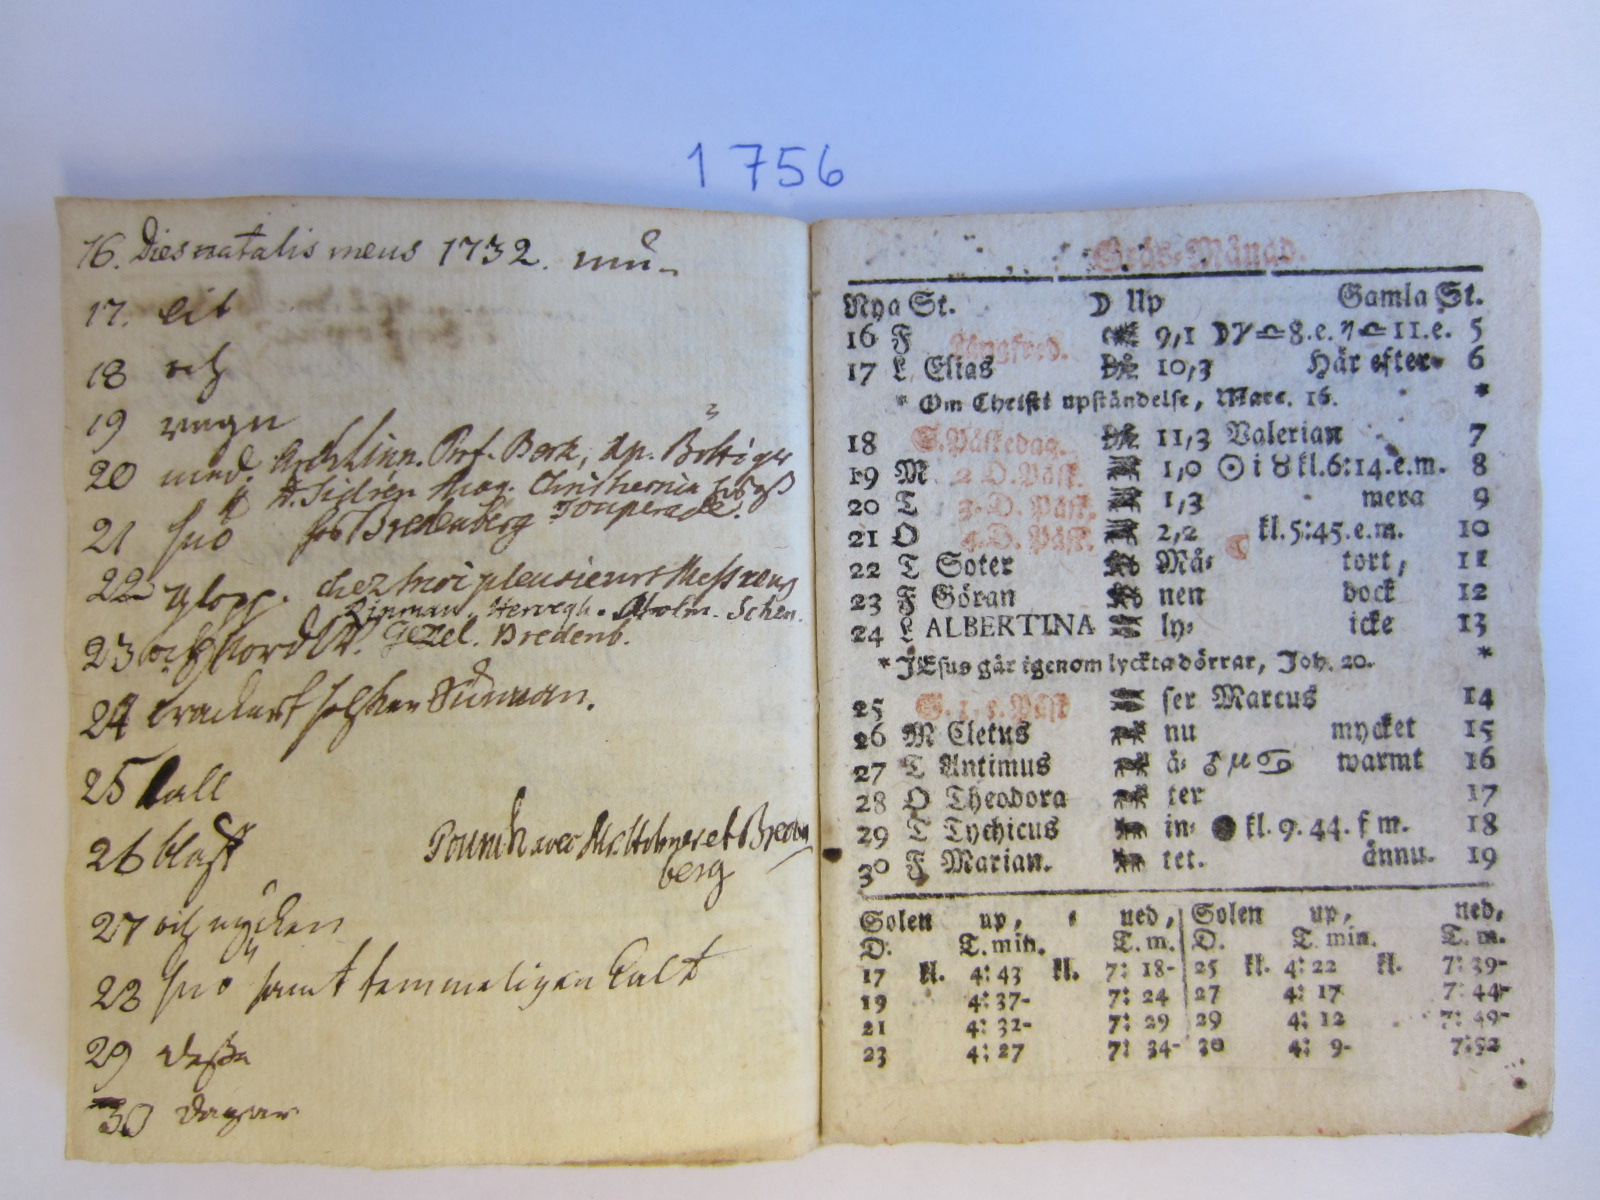 1756
16. Dies natalis meus 1732.
17.
18 och
19 regn
20 med. Prof. Berk, Ap. Böttiger
Mag.
21 snö hos Bredenberg
22 glopp. chez moi plusieurs Mess
Hervegh. Schen.
23 och Nord W. Gezel. Bredenb.
24
25 kall
26 blåst Pounch avec et Breden
berg
27 och mycken
28 snö samt temmeligen kalt
29 desse
30 dagar
Gräs-Månad.
Nya St. ☽ Up Gamla St.
16 F Långfred. 9,1 ☽♈︎♎︎8.e. ♄♎︎11.e. 5
17 L Elias 10,3 Här efter- 6
* Om Christi upståndelse, Marc. 16. *
18 S. Påskedag. 11,3 Valerian 7
19 M 2 D. Påsk. 1,0 ☉ i ♉︎ kl.6:14.e.m. 8
20 T 3. D. Påsk. 1,3 mera 9
21 O 4. D. Påsk. 2,2 ☾ kl.5:45.e.m. 10
22 T Soter Må- tort, 11
23 F Göran nen dock 12
24 L ALBERTINA ly- icke 13
* JEsus går igenom lyckta dörrar, Joh. 20. *
25 S. 1. e. Påsk ser Marcus 14
26 M Cletus nu mycket 15
27 T Antimus å- ♂ 16 warmt
28 O Theodora ter 17
29 T Tychicus in- ● kl. 9. 44. f m. 18
30 F Marian. tet. ännu. 19
Solen up, ned, Solen up, ned,
D. T. min. T. m. D. T. min. T. m.
17 kl. 4:43 kl. 7: 18- 25 kl. 4: 22 kl. 7: 39-
19 4:37- 7: 24 27 4: 17 7: 44-
21 4: 32- 7: 29 29 4: 12 7: 49-
23 4:27 7: 34- 30 4: 9- 7:52